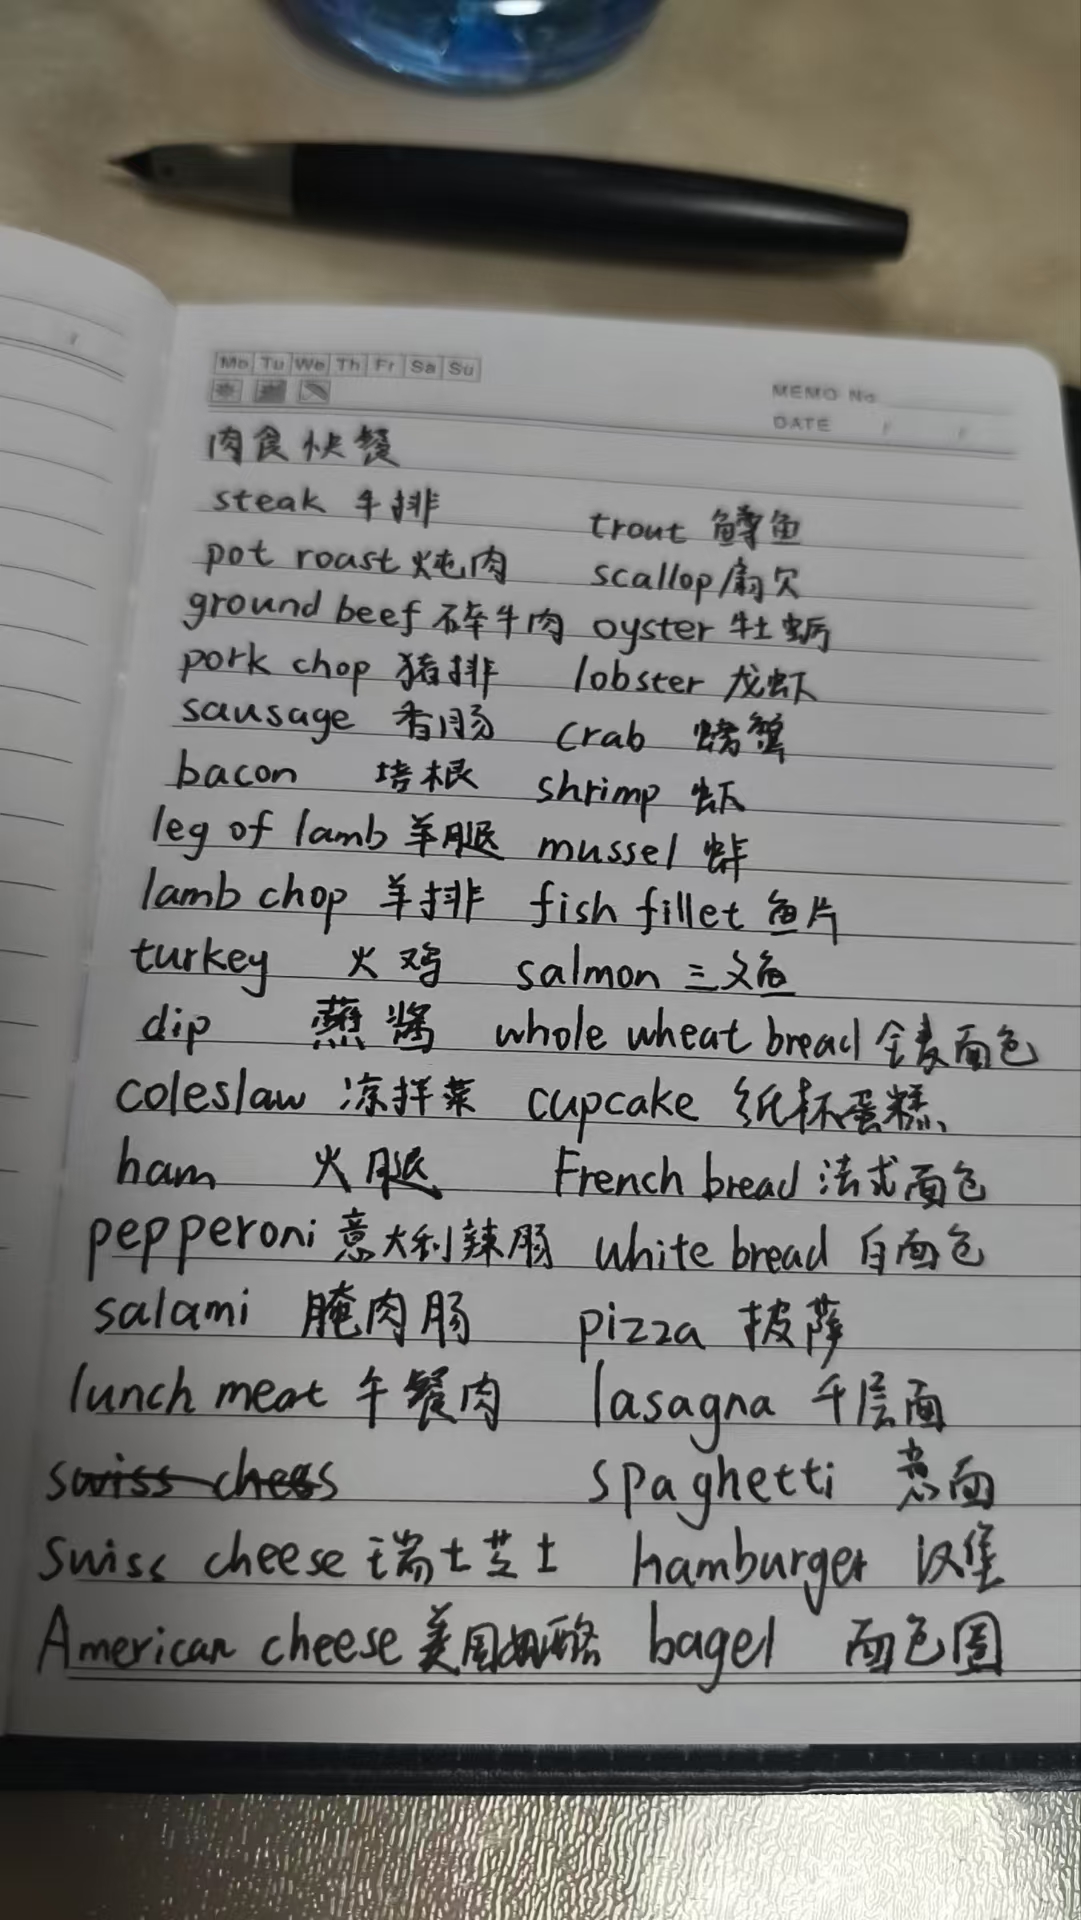 Mo Tu We Th Fr Sa Su
MEMO No.
DATE / /
肉食快餐
steak 牛排 trout 鳟鱼
pot roast 炖肉 scallop 扇贝
ground beef 碎牛肉 oyster 牡蛎
pork chop 猪排 lobster 龙虾
sausage 香肠 crab 螃蟹
bacon 培根 shrimp 虾
leg of lamb 羊腿 mussel 蚌
lamb chop 羊排 fish fillet 鱼片
turkey 火鸡 salmon 三文鱼
dip 蘸酱 whole wheat bread 全麦面包
coleslaw 凉拌菜 cupcake 纸杯蛋糕
ham 火腿 French bread 法式面包
pepperoni 意大利辣肠 white bread 白面包
salami 腌肉肠 pizza 披萨
lunch meat 午餐肉 lasagna 千层面
swiss chees spaghetti 意面
swiss cheese 瑞士芝士 hamburger 汉堡
American cheese 美国奶酪 bagel 面包圈